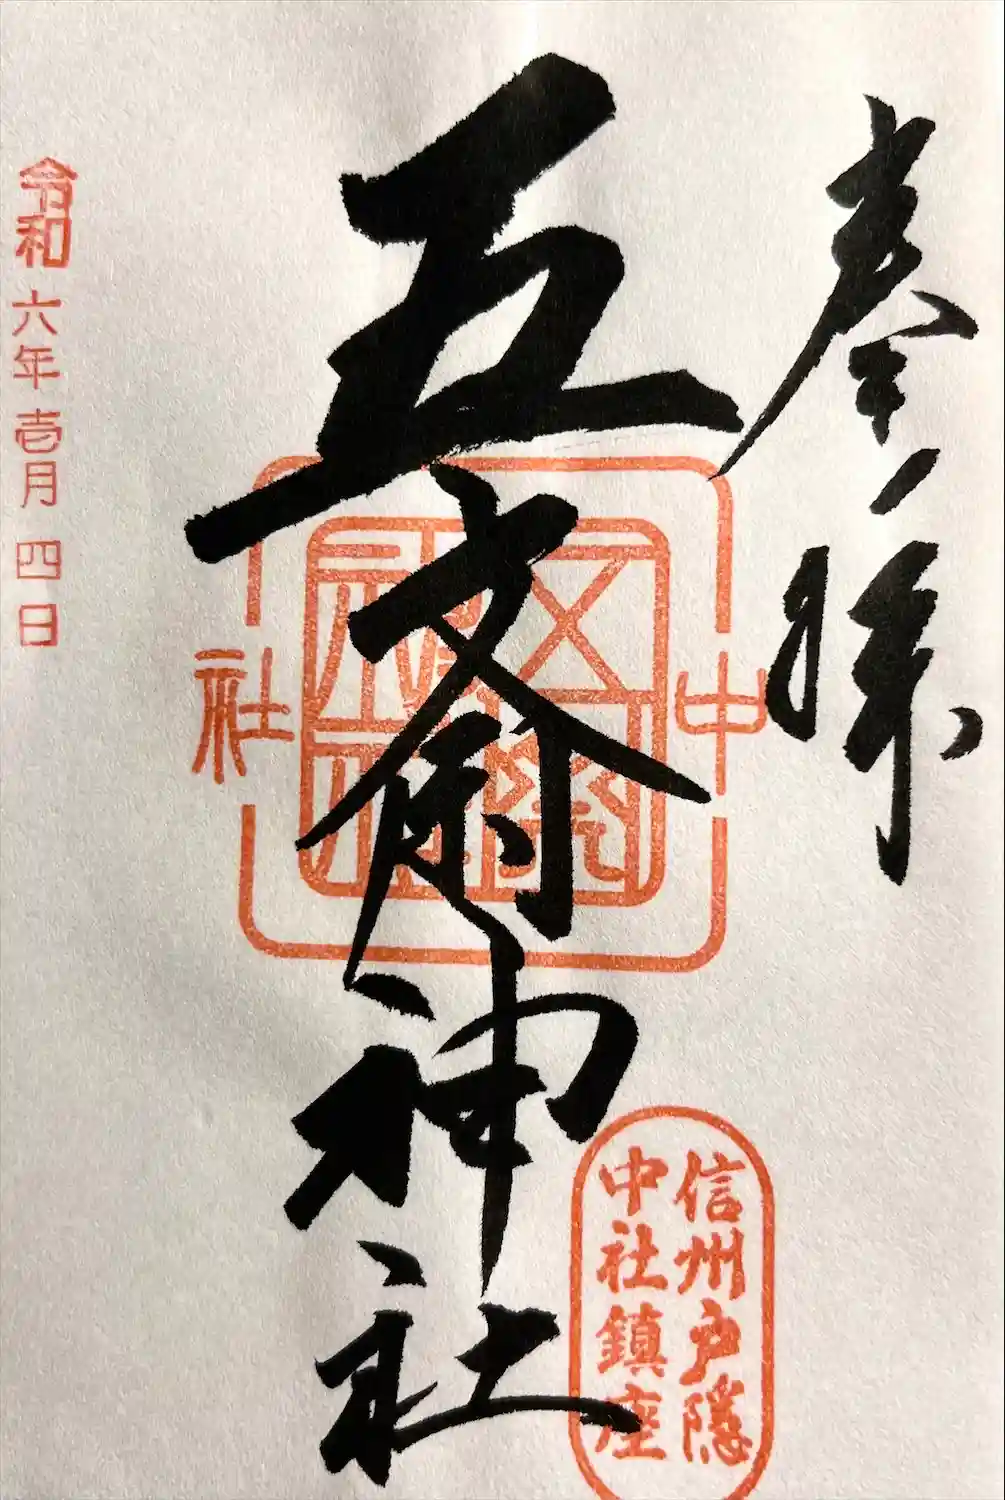 奉拝
五斎神社
中
社
信州戸隠
中社鎮座
令和六年壱月四日